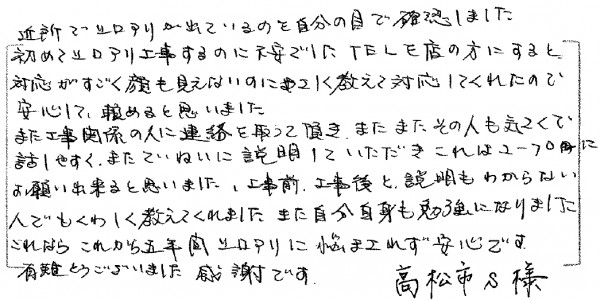 近所でシロアリが出ているのを自分の目で確認しました
初めてシロアリ工事するのに不安でした TELを店の方にすると
対応がすごく顔も見えないのにやさしく教えて対応してくれたので
安心して、頼めると思いました
また工事関係の人に連絡を取って頂き、またまたその人も気さくで
話しやすく、またていねいに説明していただき これは 2-70円に
お願い出来ると思いました、工事前、工事後と、説明もわからない
人でもくわしく教えてくれました また自分自身も勉強になりました
これなら これから五年間シロアリに悩まされず安心です
有難とうございました 感謝です。
高松市S様